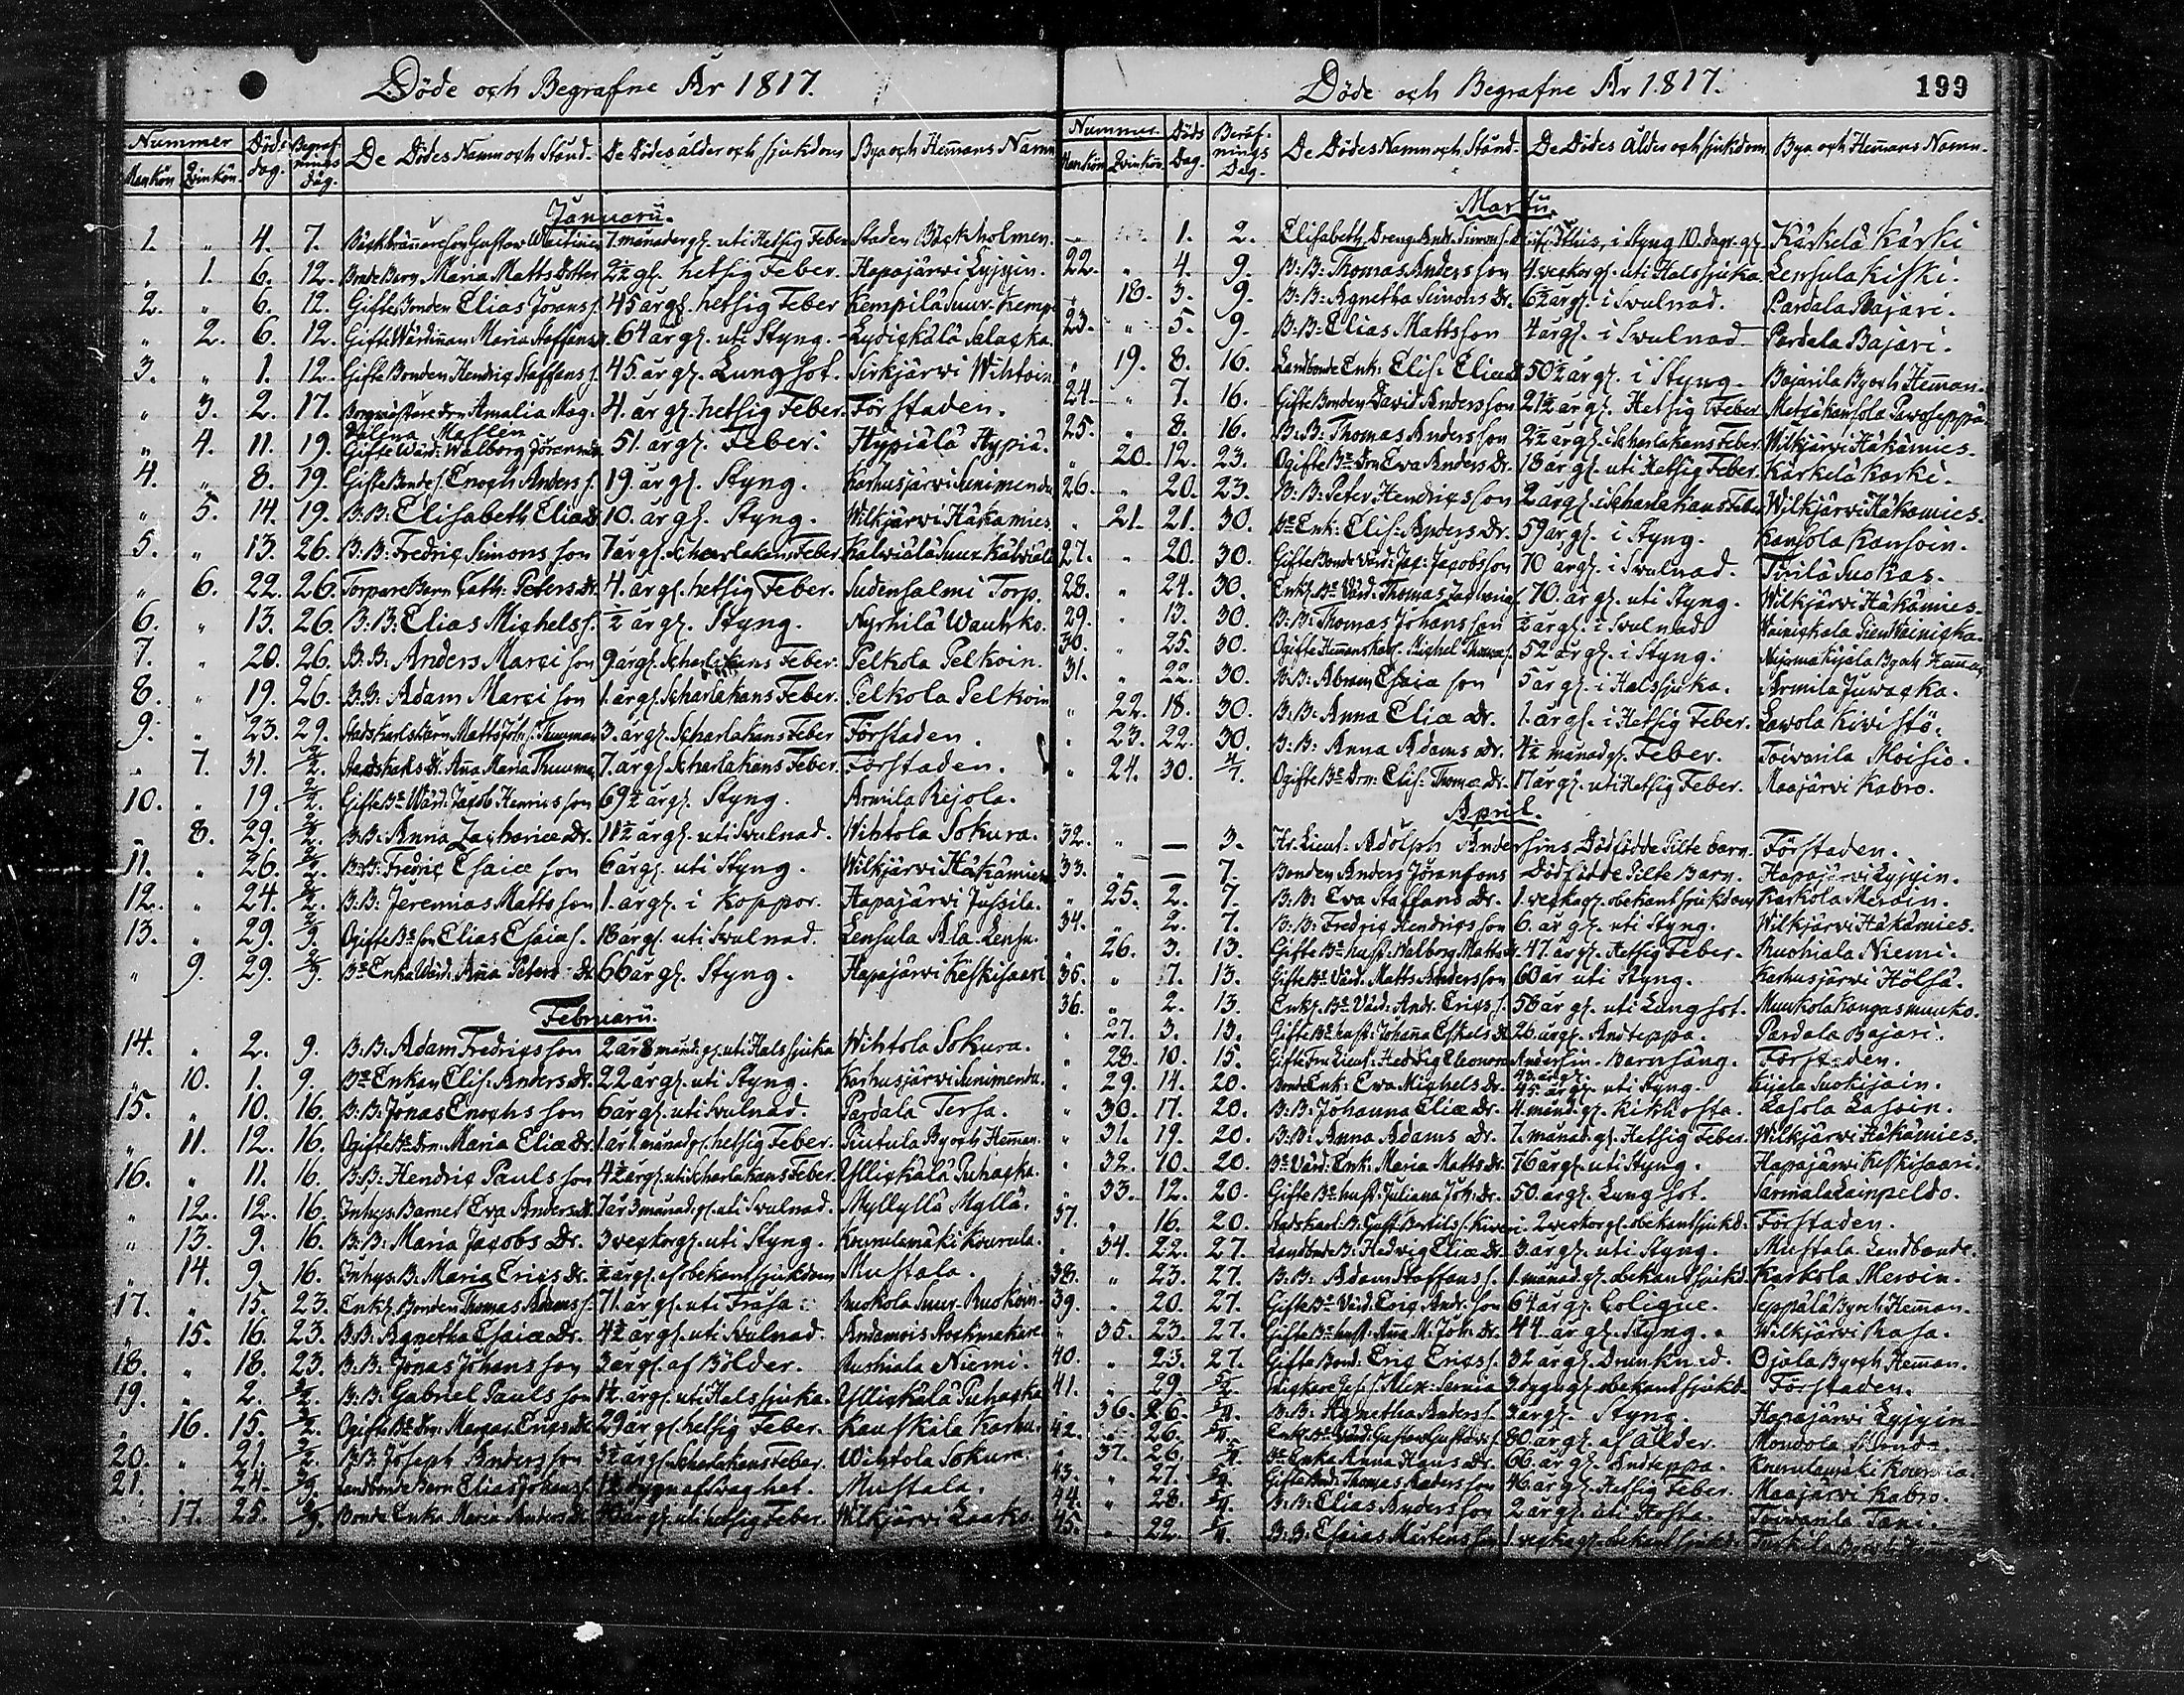 Döde och Begrafne År 1817.
Nummer Döds dag. Begrafnings dag. De Dödes Namn och Stånd. De Dödes ålder och sjukdom Bya och Hemans Namn
Mankön Qvinkön
Januarii.
1. " 4. 7. Gustav 7. månader gl. uti Hetsig Feber Staden Bäckholmen.
" 1. 6. 12. Bonde Barn Maria Matts Dotter 2½ gl. hetsig Feber. Hapajärvi Lyjyin.
2. " 6. 12. Gifte Bonden Elias Jörans s. 45 år gl. hetsig Feber Kempilä Suur-Kempi
" 2. 6. 12. Gifte Wärdinan Maria Staffans 64 år gl. uti Styng. Lydickälä Salacka.
3. " 1. 12. Gifte Bonden Hendric Staffans s. 45 år gl. Lungsot. Sirkjärvi Wihtoin
" 3. 2. 17. Amalia Mag. 4. år gl. hetsig Feber. Förstaden.
" 4. 11. 19. Gifte Wärd: Walborg Jörans 51. år gl. Feber. Hypiälä Hypiä.
4. " 8. 19. Gifte Bonde s. Enoch Anders s. 19. år gl. Styng. Karhusjärvi Sunimendu
" 5. 14. 19. B: B: Elisabeth Eliæ D. 10. år gl. Styng. Wilkjärvi Häkämies.
5. " 13. 26. B: B: Fredric Simons son 7 år gl. Scharlakans Feber. Kalwiälä Suur Kälwiälä
" 6. 22. 26. Torpare Barn Cath: Peters Dr. 4. år gl. hetsig Feber. Sudensalmi Torp.
6. " 13. 26. B: B: Elias Michels s. ½ år gl. Styng. Nyrhilä Wauhko.
7. " 20. 26. B: B: Anders Marci son 9 år gl. Scharlakans Feber. Pelkola Pelkoin.
8. " 19. 26. B: B: Adam Marci son 1. år gl. Scharlakans Feber. Pelkola Pelkoin
9. " 23. 29. Stadskarls Barn Matts Joh: s. Thuuman 3. år gl. Scharlakans Feber Förstaden.
" 7. 31. 2/2. Stadskarls Dr. Aña Maria Thuuman 7. år gl. Scharlakans Feber. Förstaden.
10. " 19. 2/2. Gifte Be Wärd: Jacob Henrics son 69½ år gl. Styng. Armila Rejola.
" 8. 29. 2/2. B: B: Anna Zachariæ Dr. 11½ år gl. uti Swulnad. Wihtola Sokura.
11. " 26. 2/2. B: B: Fredric Esaiæ son 6 år gl. uti Styng. Wilkjärvi Häkämies
12. " 24. 2/2. B: B: Jeremias Matts son 1. år gl. i Koppor. Hapajärvi Jussila.
13. " 29. 2/9. Ogifte Be son Elias Esaiæ s. 18 år gl. uti Swulnad. Lensula Ala-Lensu.
" 9. 29. 2/9. Be Enka Wärd: Aña Peters Dr. 66 år gl. Styng. Hapajärvi Keskisaari
Februarii.
14. " 2. 9. B: B: Adam Fredrics son 2 år 8 månd: gl. uti Halssjuka Wihtola Sokura.
" 10. 1. 9. Be Enkan Elis. Anders Dr. 22 år gl. uti Styng. Karhusjärvi Sunimendu.
15. " 10. 16. B: B: Jonas Enochs son 6 år gl. uti Swulnad. Pardala Tersa.
" 11. 12. 16. Ogifte Be Drn: Maria Eliæ Dr. 1. år 1 månad gl. hetsig Feber. Piutula By och Heman.
16. " 11. 16. B: B: Hendric Pauls son 4½ år gl. uti Scharlakans Feber. Yllickälä Puhacka.
" 12. 12. 16. Inhys: Barnet Eva Anders Dr. 7 år 3 månad. gl. uti Swulnad. Myllyllä Myllä.
" 13. 9. 16. B: B: Maria Jacobs Dr. 3 veckor gl. uti Styng. Kourulamäki Kourula.
" 14. 9. 16. Inhys: B: Maria Erics Dr. ½ år gl. af obekant sjukdom Mustola.
17. " 15. 23. Enkl. Bonden Thomas Adams s. 71. år gl. uti Frasa. Ruokola Suur-Ruokoin.
" 15. 16. 23. B: B: Agnetha Esaiæ Dr. 4½ år gl. uti Swulnad.
18. " 18. 23. B: B: Jonas Johans son 3 år gl. af Bölder. Ruohiala Niemi.
19. " 2. 2/2. B: B: Gabriel Pauls son 1½ år gl. uti Halssjuka. Yllickälä Puhacka
" 16. 15. 2/2. Ogifte Be Dr: Margar. Erics Dr. 29 år gl. hetsig Feber. Kauskila Karhu.
20. " 21. 2/2. B: B: Joseph Anders son 3½ år gl. Scharlakans Feber. Wihtola Sokura.
21. " 24. 2/9. Landbonde Barn Elias Johans s. Mustola.
" 17. 25. 2/9. Bonde Enka Maria Anders Dr. 40 år gl. uti hetsig Feber. Wilkjärvi Laako.
Döde och Begrafne År 1817. 199
Nummer Döds Dag. Begrafnings Dag. De Dödes Namn och Stånd. De Dödes Ålder och sjukdom Bya och Hemans Namn.
Mankön Qvinkön
Martii.
1. 2. Elisabeth, Dreng Andr. Simons s. i Styng 10. dagr. gl. Kärkelä Kärki
22. " 4. 9. B: B: Thomas Anders son 4. veckor gl. uti Halssjuka. Lensula Kiski.
" 18. 3. 9. B: B: Agnetha Simons Dr. 6½ år gl. i Swulnad. Pardala Bajari.
23. " 5. 9. B: B: Elias Matts son 4 år gl. i Swulnad. Pardala Bajari.
" 19. 8. 16. Landbonde Enk: Elis. Eliæ D. 50½ år gl. i Styng. Bajarila By och Heman.
24. " 7. 16. Gifte Bonden David Anders son 21½ år gl. Hetsig Feber Metsäkansola Pavoseppä.
25. " 8. 16. B: B: Thomas Anders son 2½ år gl. i Scharlakans Feber. Wilkjärvi Häkämies.
" 20. 12. 23. Ogifte Be Drn Eva Anders Dr. 18 år gl. uti Hetsig Feber. Kärkelä Karki.
26. " 20. 23. B: B: Peter Hendrics son 2 år gl. i Scharlakans Feber Wilkjärvi Häkämies.
" 21. 21. 30. Be Enk: Elis. Anders Dr. 59 år gl. i Styng. Kansola Kansoin.
27. " 20. 30. Gifte Bonde Värd: Jac: Jacobs son 70 år gl. i Swulnad. Tirilä Suokas.
28. " 24. 30. Enkl. Be Värd. Thomas Zachriæ s. 70. år gl. uti Styng. Wilkjärvi Häkämies.
29. " 13. 30. B: B: Thomas Johans son ½ år gl. i Swulnad.
30. " 25. 30. Ogifte Hemans Karl. Michel Thomæ s. 52 år gl. i Styng.
31. " 22. 30. B: B: Abram Esaiæ son 5 år gl. i Halssjuka. Armila Juvacka.
" 22. 18. 30. B: B: Anna Eliæ Dr. 1. år gl. i Hetsig Feber. Lavola Kivistö.
" 23. 22. 30. B: B: Anna Adams Dr. 4½ månad gl. Feber. Toivarila Moisio.
" 24. 30. 4/7. Ogifte Be Drn: Elis: Thomæ Dr. 17 år gl. uti Hetsig Feber. Maajärvi Kabro.
April.
32. " — 3. Hr. Lieut. Adolph Andersins Dödfödde Pilte barn. Förstaden.
33. " — 7. Bonden Anders Jöransons Dödfödde Pilte Barn. Hapajärvi Lyjyin.
" 25. 2. 7. B: B: Eva Staffans Dr. 1. vecka gl. obekant sjukdom Karkola Meroin.
34. " 2. 7. B: B: Fredric Hendrics son 6. år gl. uti Styng. Wilkjärvi Häkämies.
" 26. 3. 13. Gifte Be hust. Walborg Matts Dr. 47. år gl. Hetsig Feber. Ruohiala Niemi.
35. " 7. 13. Gifte Be Värd. Matts Anders son 60 år uti Styng. Karhusjärvi Hölsä.
36. " 2. 13. Enkl. Be Värd. Andr. Erics s. 58 år gl. uti Lungsot. Muukola Kangasmuuko.
" 27. 3. 13. Gifte Be hust. Johaña Eskels Dr. 26. år gl. Andteppa. Pardala Bajari.
" 28. 10. 15. Gifte Fru Lieut. Hedvig Eleonora Andersin. Barnsäng. Förstaden.
" 29. 14. 20. Bonde Enk: Eva Michels Dr. 45. år gl. uti Styng. Kijala Suokijain.
" 30. 17. 20. B: B: Johanna Eliæ Dr. 4. månd. gl. Kikhosta. Lasola Lasoin.
" 31. 19. 20. B: B: Anna Adams Dr. 7. månad. gl. Hetsig Feber. Wilkjärvi Häkämies.
" 32. 10. 20. Be Värd: Enk: Maria Matts Dr. 76 år gl. uti Styng. Hapajärvi Keskisaari.
" 33. 12. 20. Gifte Be hust. Juliana Joh: Dr. 50. år gl. Lungsot. Sarmala Lainpeldo.
37. " 16. 20. Stadskarl: B: Gust. Bertils s. 2 veckor gl. obekant sjukd. Förstaden.
" 34. 22. 27. Landbonde B: Hedvig Eliæ Dr. 3 år gl. uti Styng. Mustola Landbonde.
38. " 23. 27. B: B: Adam Staffans s. 1. månad. gl. obekant sjukd. Karkola Meroin.
39. " 20. 27. Gifte Be Värd. Eric Andr. son 64 år gl. Colique. Seppälä By och Heman.
" 35. 23. 27. Gifte Be hust. Aña M. Joh: Dr. 44. år gl. Styng. Wilkjärvi Rasa.
40. " 23. 27. Gifte Bond. Eric Erics s. 32 år gl. Drunknad. Ojala By och Heman.
41. " 29. 5/2. Alex: 3. dygn gl. obekant sjukd. Förstaden.
" 36. 26. 5/4. B: B: Agnetha Anders s. 3 år gl. Styng. Hapajärvi Lyjyin
42. " 26. 5/4. Enkl. Be Värd: Gustav Gustavs s. 80 år gl. af Ålder.
" 37. 26. 5/4. Be Enka Anna Hans Dr. 66. år gl. Andteppa. Kourulamäki Kourula.
43. " 27. 5/4. Gifte Bond. Thomas Anders son 46 år gl. Hetsig Feber. Maajärvi Kabro.
44. " 28. 5/4. B: B: Elias Anders son 2 år gl. uti Hosta. Toivarila Tani.
45. " 22. 5/4. B: B: Esaias Mårtens son 1. vecka gl. obekant sjukd.